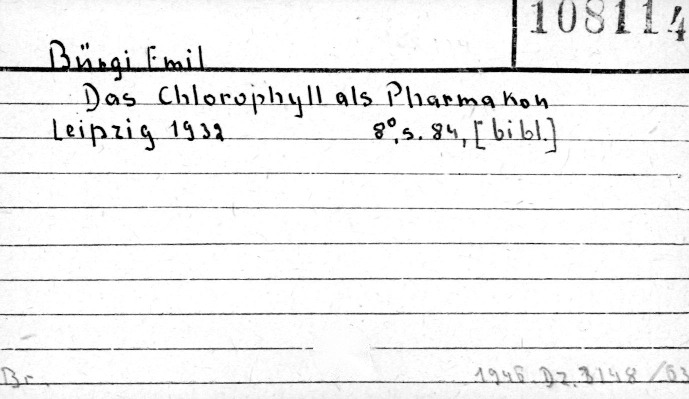 108114
Bürgi Emil
Das Chlorophyll als Pharmakon
Leipzig 1932 8°, s. 84, [bibl.]
Br. 1946. Dz. 3148/63